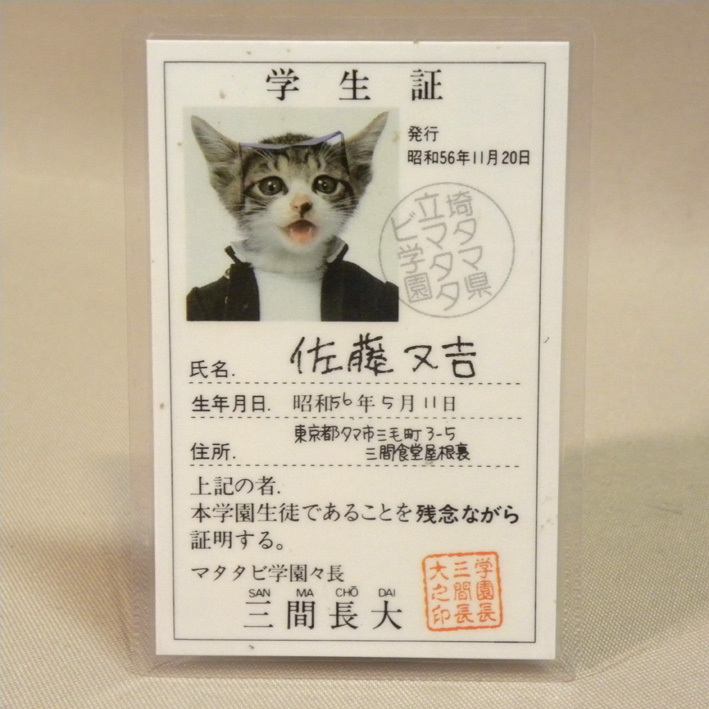 学生証
発行
昭和56年11月20日
埼タマ県
立マタタ
ビ学園
氏名. 佐藤又吉
生年月日. 昭和56年5月11日
住所. 東京都タマ市三毛町3-5
三間食堂屋根裏
上記の者.
本学園生徒であることを残念ながら
証明する。
マタタビ学園々長
SAN MA CHŌ DAI
三間長大
学園長
三間長
大之印